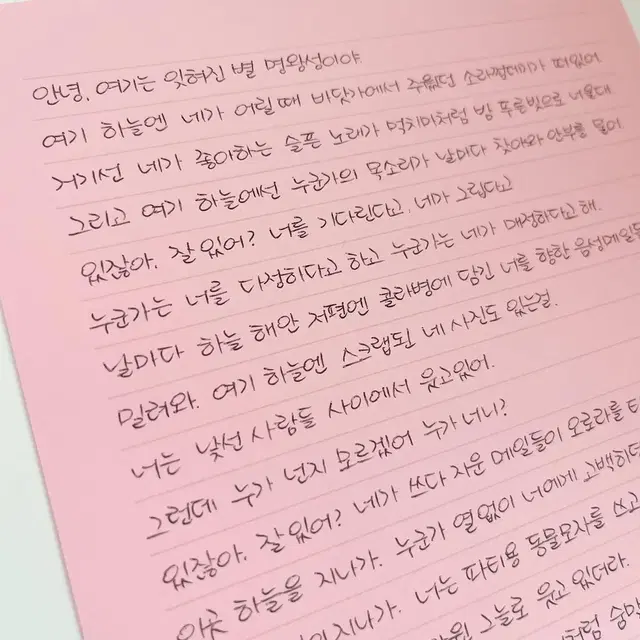 안녕. 여기는 잊혀진 별 명왕성이야
여기 하늘엔 네가 어릴 때 바닷가에서 주웠던 소라껍데기가 떠있어
거기선 네가 좋아하는 슬픈 노래가 먹치마처럼 밤 푸른빛으로 너울대
그리고 여기 하늘에선 누군가의 목소리가 날마다 찾아와 안부를 물어
있잖아. 잘 있어? 너를 기다린다고. 네가 그립다고
누군가는 너를 다정하다고 하고 누군가는 네가 매정하다고 해.
날마다 하늘 해안 저편엔 콜라병에 담긴 너를 향한 음성메일들
밀려와. 여기 하늘엔 스크랩된 네 사진도 있는걸.
너는 낯선 사람들 사이에서 웃고있어.
그런데 누가 넌지 모르겠어 누가 너니?
있잖아. 잘 있어? 네가 쓰다 지운 메일들이 오로라를 타
이곳 하늘을 지나가. 누군가 열없이 너에게 고백하던
지나가. 너는 파티용 동물모자를 쓰고
그늘로 웃고 있더라.
처럼